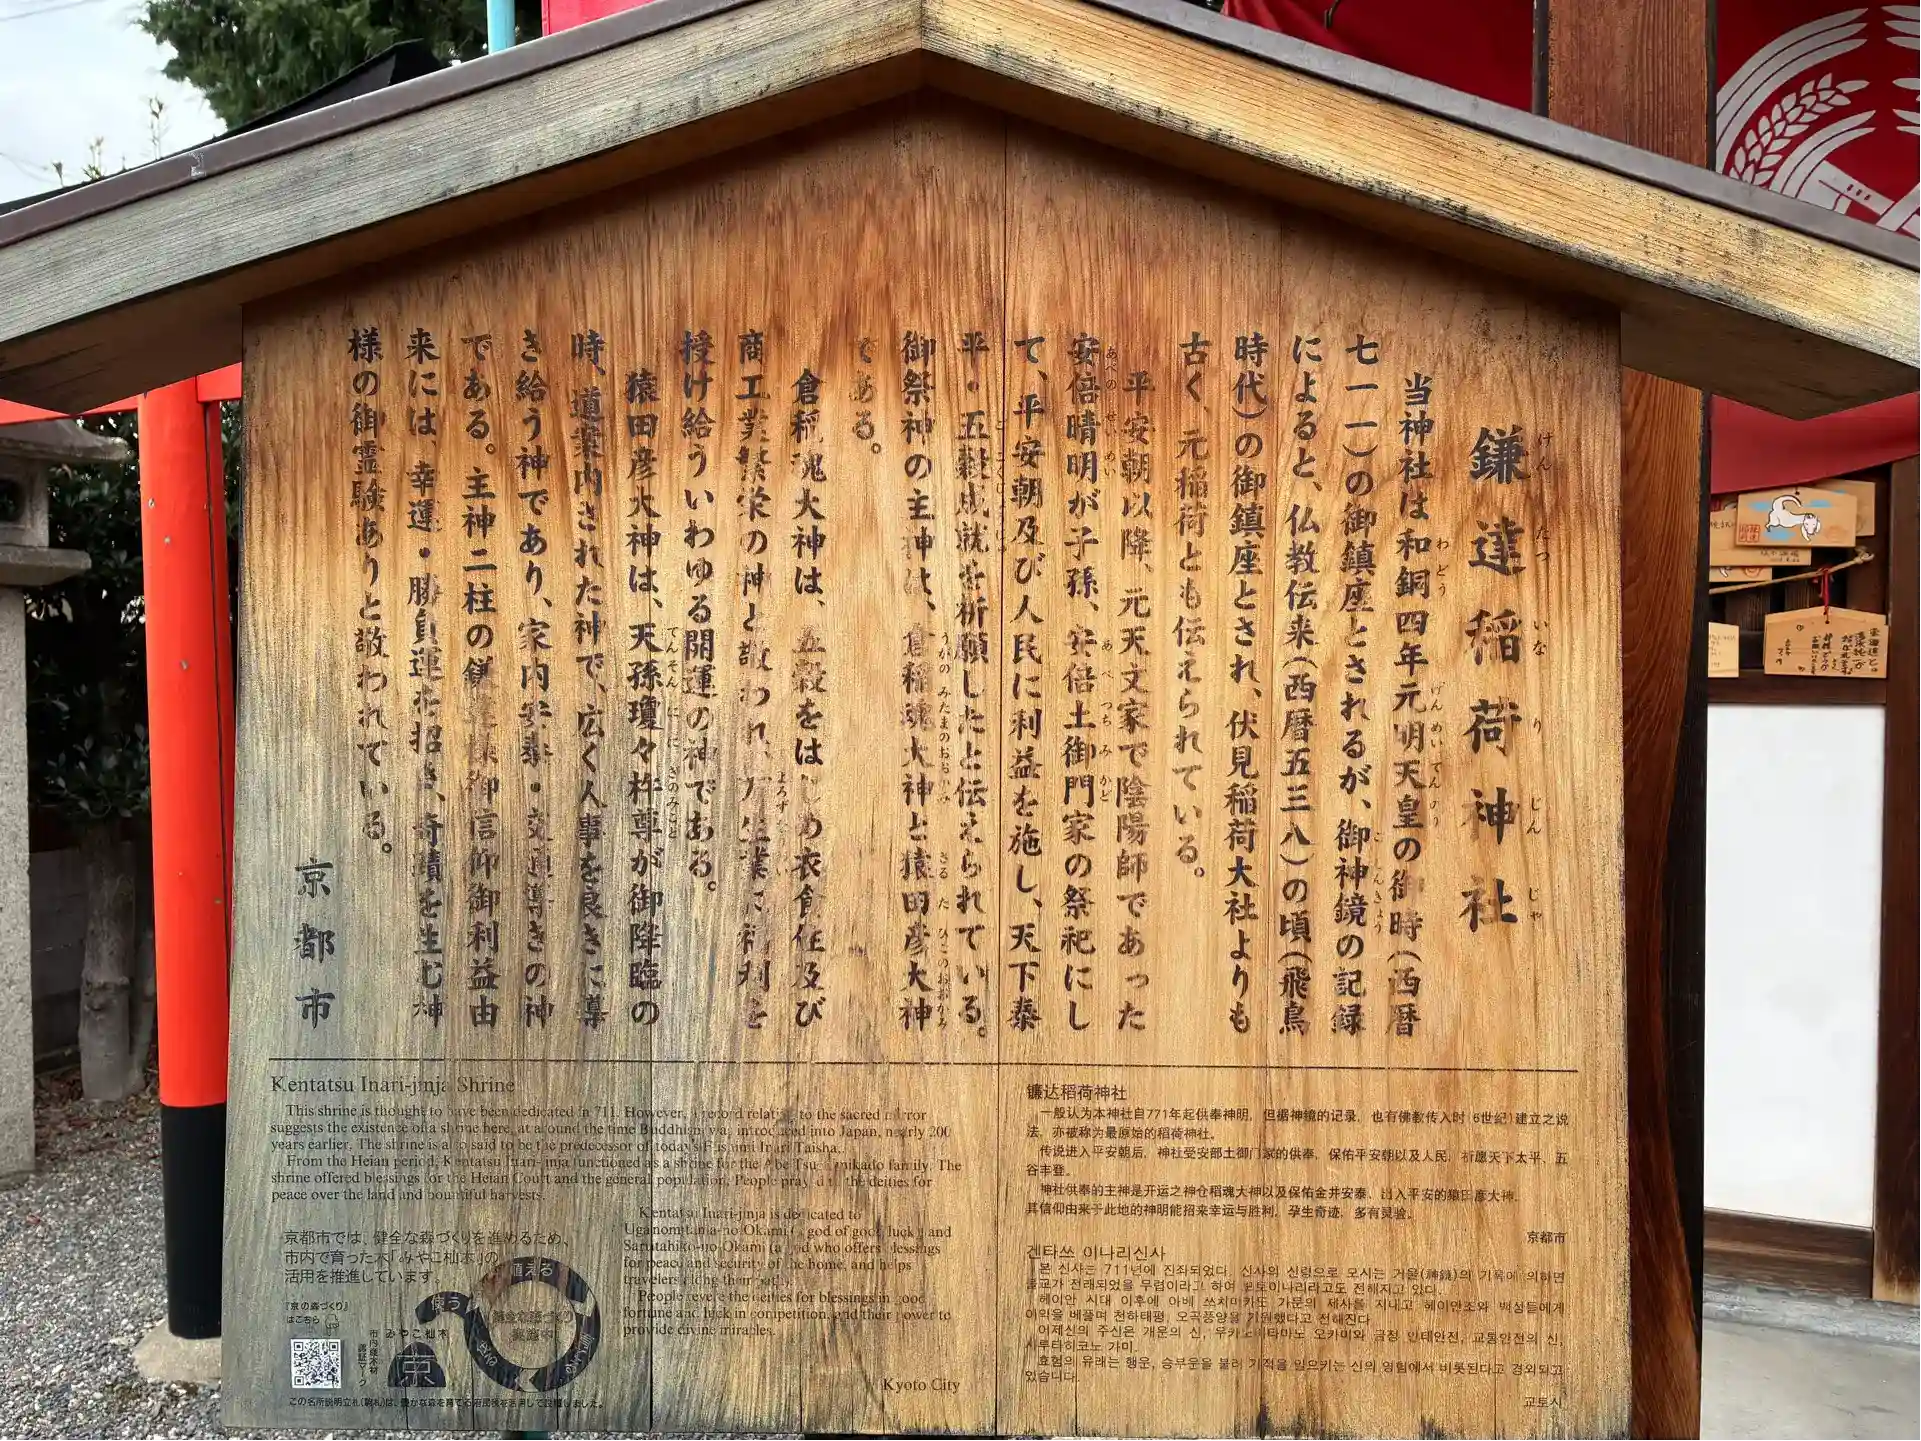 鎌達稲荷神社
けんたついなりじんじゃ
当神社は和銅四年元明天皇の御時(西暦
わどう
げんめいてんのう
七一一)の御鎮座とされるが、御神鏡の記録
ごしんきょう
によると、仏教伝来(西暦五三八)の頃(飛鳥
時代)の御鎮座とされ、伏見稲荷大社よりも
古く、元稲荷とも伝えられている。
平安朝以降、元天文家で陰陽師であった
安倍晴明が子孫、安倍土御門家の祭祀にし
あべの せいめい
あべ つちみかど
て、平安朝及び人民に利益を施し、天下泰
平・五穀成就を祈願したと伝えられている。
御祭神の主神は、倉稲魂大神と猿田彦大神
うがのみたまのおおかみ
さるたひこのおおかみ
である。
倉稲魂大神は、五穀をはじめ衣食住及び
商工業繁栄の神と敬われ、万生業に福利を
よろず
授け給ういわゆる開運の神である。
猿田彦大神は、天孫瓊々杵尊が御降臨の
てんそん ににぎのみこと
時、道案内された神で、広く人事を良きに導
き給う神であり、家内安泰・交通導きの神
である。主神二柱の鎌達様御信仰御利益由
来には、幸運・勝負運を招き、奇蹟を生む神
様の御霊験ありと敬われている。
京都市
Kentatsu Inari-jinja Shrine
This shrine is thought to have been dedicated in 711. However, a record relating to the sacred mirror
suggests the existence of a shrine here, at around the time Buddhism was introduced into Japan, nearly 200
years earlier. The shrine is also said to be the predecessor of today's Fushimi Inari Taisha.
From the Heian period, Kentatsu Inari-jinja functioned as a shrine for the Abe Tsuchimikado family. The
shrine offered blessings for the Heian Court and the general population. People prayed to the deities for
peace over the land and bountiful harvests.
Kentatsu Inari-jinja is dedicated to
Uganomitama-no-Okami (a god of good luck) and
Sarutahiko-no-Okami (a god who offers blessings
for peace and security of the home, and helps
travelers along their path).
People revere the deities for blessings in good
fortune and luck in competition, and their power to
provide divine miracles.
Kyoto City
京都市では、健全な森づくりを進めるため、
市内で育った木「みやこ杣木」の
活用を推進しています。
『京の森づくり』
はこちら
市内産木材
認証マーク
みやこ杣木
京
植える
使う
健全な森づくり
実施中
この名所説明立札(駒札)は、豊かな森を育てる府民税を活用して設置しました。
镰达稻荷神社
一般认为本神社自771年起供奉神明，但据神镜的记录，也有佛教传入时(6世纪)建立之说
法，亦被称为最原始的稻荷神社。
传说进入平安朝后，神社受安部土御门家的供奉，保佑平安朝以及人民，祈愿天下太平、五
谷丰登。
神社供奉的主神是开运之神仓稻魂大神以及保佑金井安泰、出入平安的猿田彦大神。
其信仰由来于此地的神明能招来幸运与胜利，孕生奇迹，多有灵验。
京都市
겐타쓰 이나리신사
본 신사는 711년에 진좌되었다. 신사의 신령으로 모시는 거울(神鏡)의 기록에 의하면
불교가 전래되었을 무렵이라고 하여 모토이나리라고도 전해지고 있다.
헤이안 시대 이후에 아베 쓰치미카도 가문의 제사를 지내고 헤이안조와 백성들에게
이익을 베풀며 천하태평, 오곡풍양을 기원했다고 전해진다
어제신의 주신은 개운의 신, 우카노미타마노 오카미와 금정 안태안전, 교통안전의 신,
사루타히코노 가미.
효험의 유래는 행운, 승부운을 불러 기적을 일으키는 신의 영험에서 비롯된다고 경외되고
있습니다.
교토시